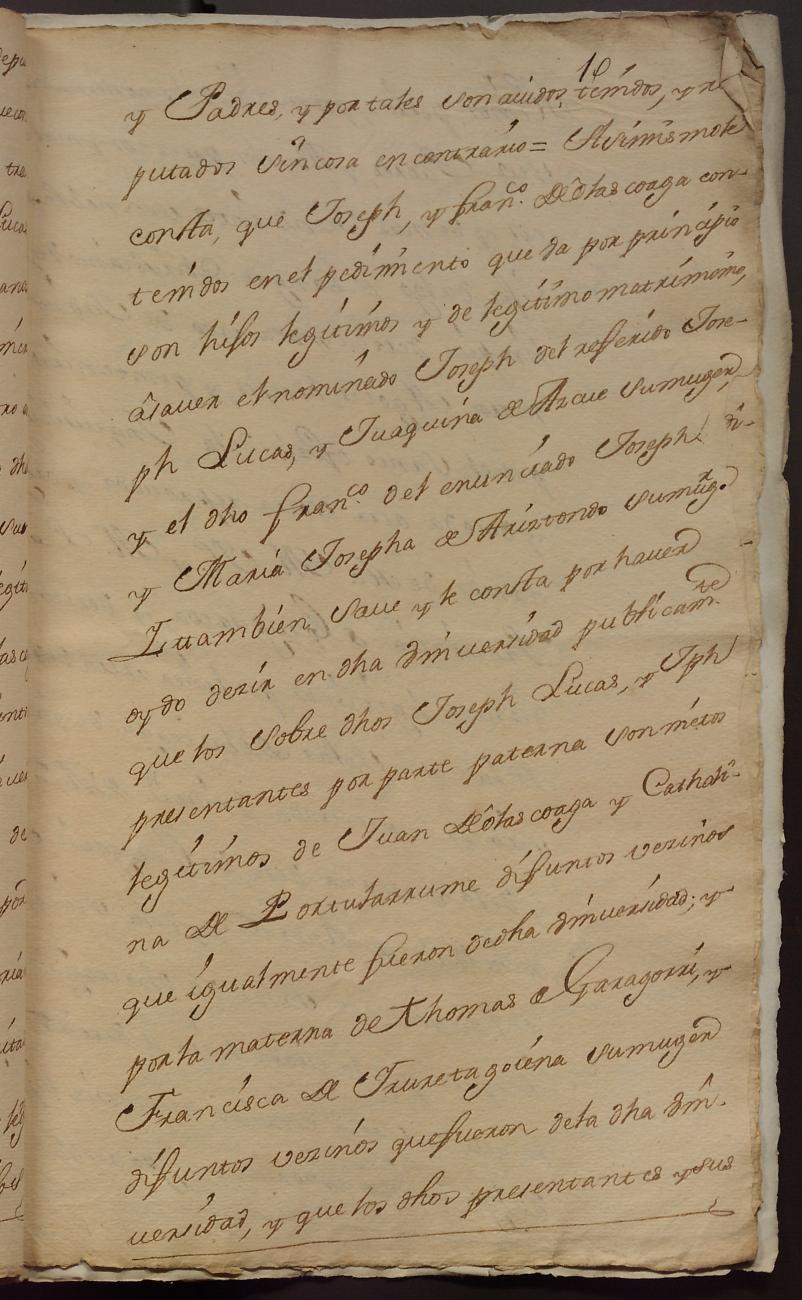 10
y Padres, y por tales son avidos, tenidos, y re
putados sin cosa en contrario = Asimismo le
consta, que Joseph, y Fran.co De Olascoaga con-
tenidos en el pedimiento que da por principio
son hijos legitimos y de legitimo matrimonio,
a saver el nominado Joseph del refferido Jose-
ph Lucas, y Juaquina de Arcue su muger,
y el dho Fran.co del enunciado Joseph
y Maria Josepha de Ariztondo su mug.r
I tambien save y le consta por haver
oydo dezir en dha Universidad publicam.te
que los sobre dhos Joseph Lucas, y Jph
presentantes por parte paterna son nietos
legitimos de Juan De Olascoaga y Cathali-
na De Portularrume difuntos vezinos
que igualmente fueron de dha Universidad; y
por la materna de Thomas de Garagorri, y
Francisca De Iruretagoiena su muger
difuntos vezinos que fueron de la dha Uni-
versidad, y que los dhos presentantes y sus